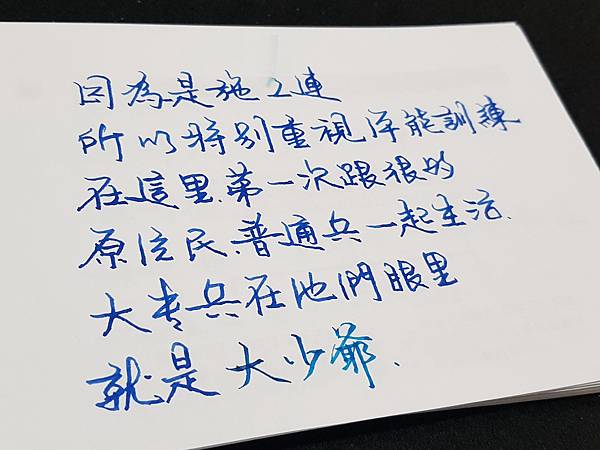 因為是施工連
所以特別重視体能訓練
在這里、第一次跟很多
原住民、普通兵一起生活、
大专兵在他們眼里
就是大少爺、